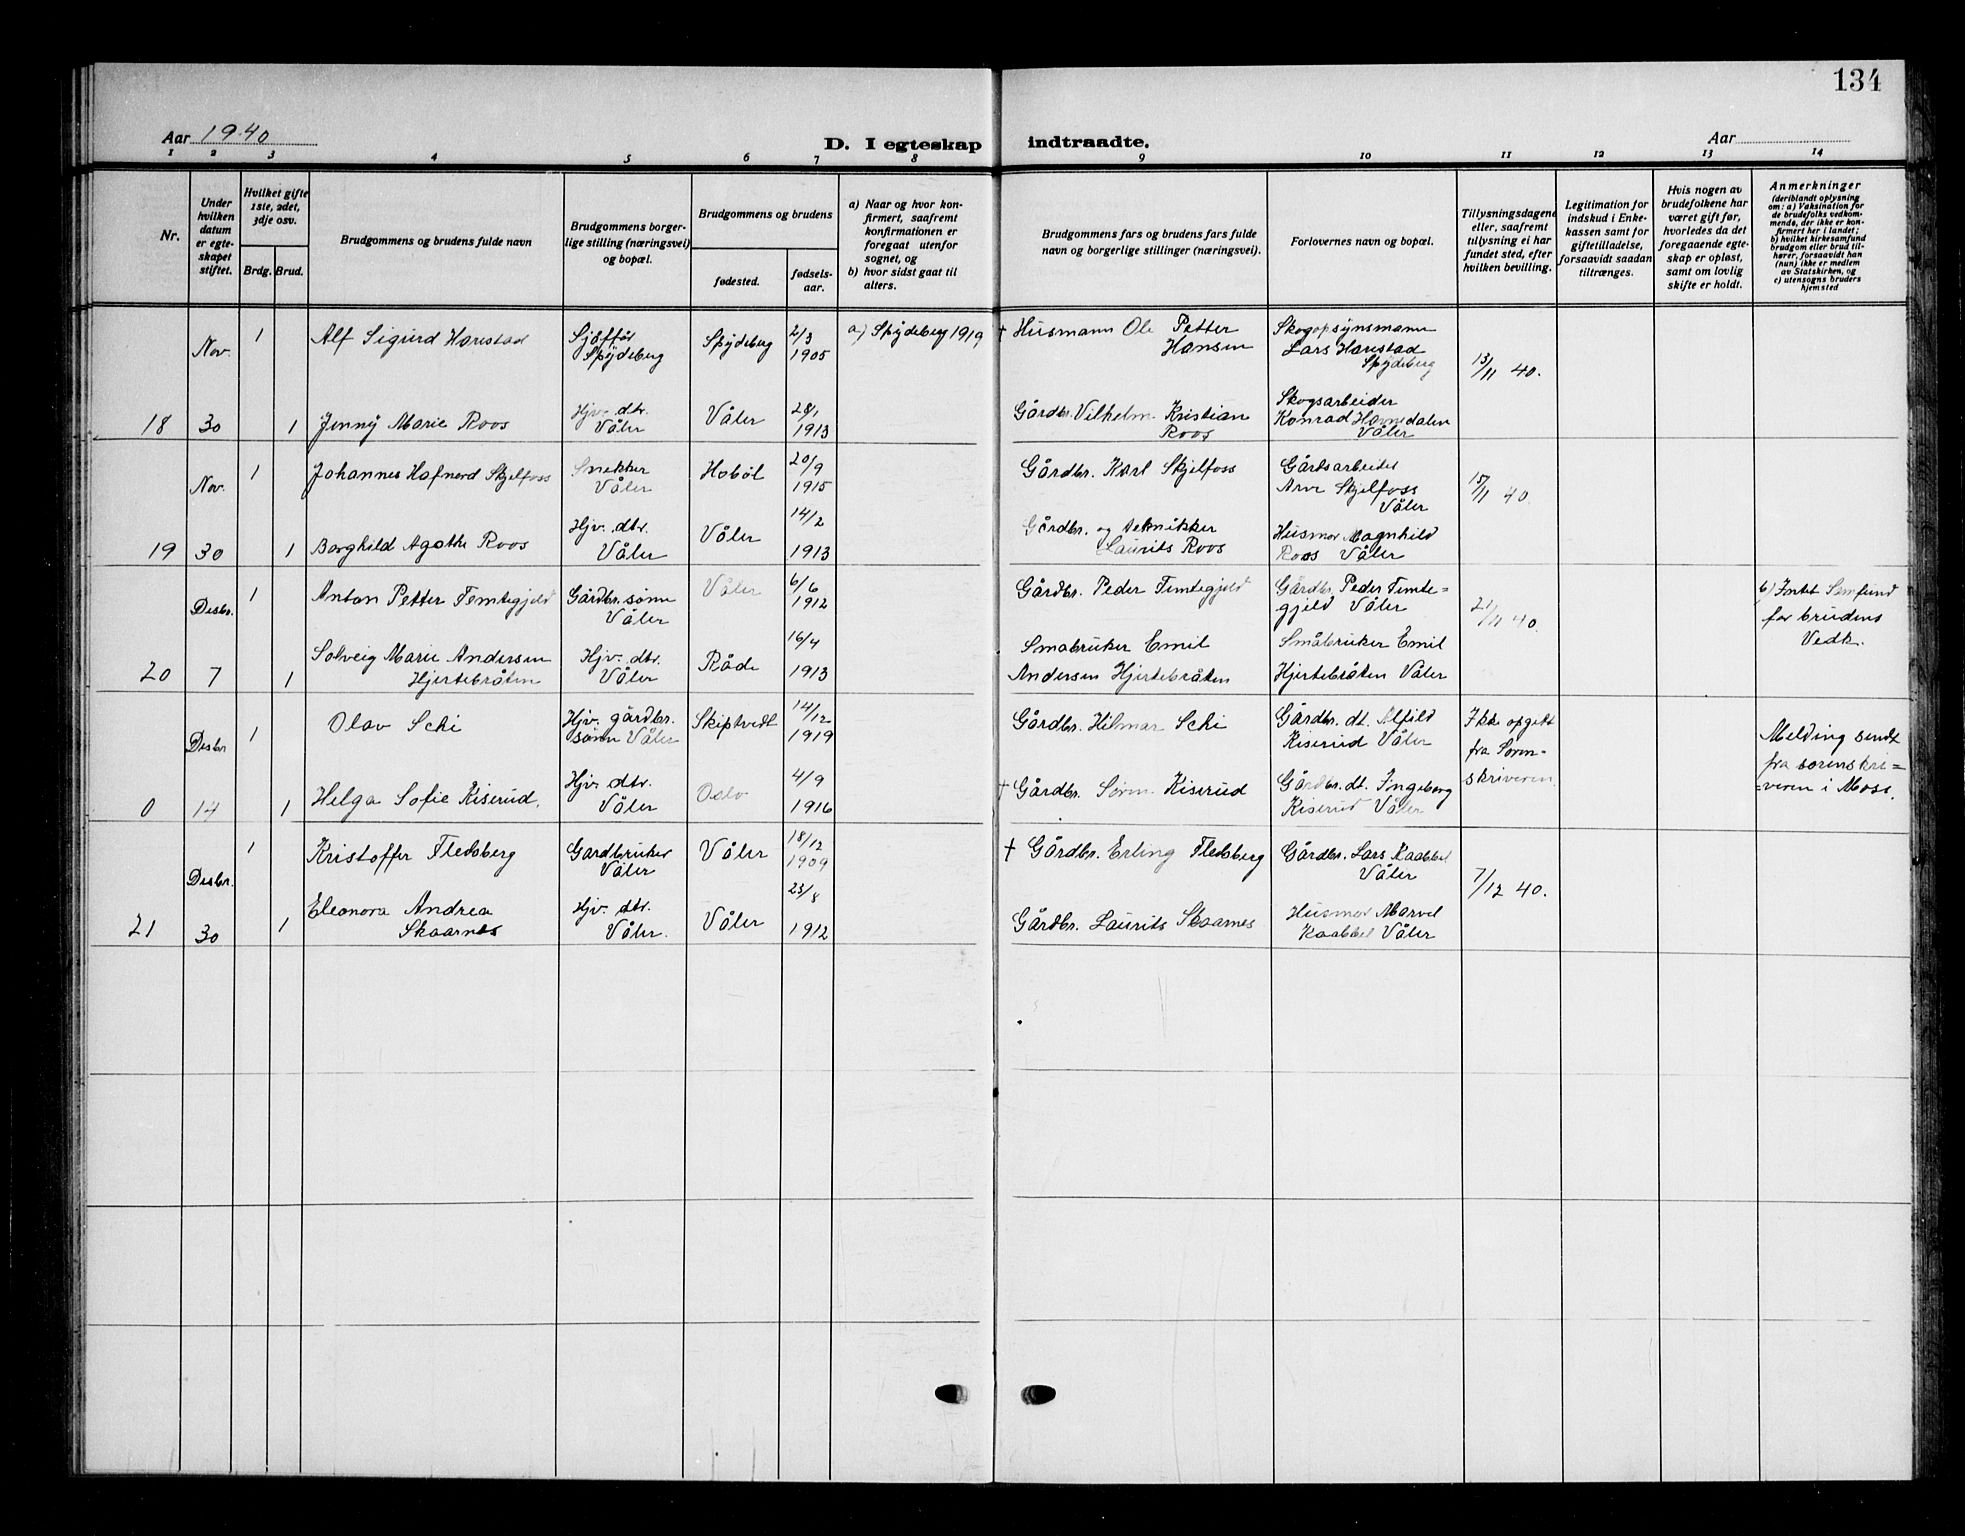 134
Aar 1940
D. I egteskap indtraadte.
Aar
1 2 3 4 5 6 7 8 9 10 11 12 13 14
Nr.
Under hvilken datum er egteskapet stiftet.
Hvilket gifte 1ste, 2det, 3dje osv.
Brdg. Brud.
Brudgommens og brudens fulde navn
Brudgommens borgerlige stilling (næringsvei) og bopæl.
Brudgommens og brudens
fødested.
fødselsaar.
a) Naar og hvor konfirmert, saafremt konfirmationen er foregaat utenfor sognet, og
b) hvor sidst gaat til alters.
Brudgommens fars og brudens fars fulde navn og borgerlige stillinger (næringsvei).
Forlovernes navn og bopæl.
Tillysningsdagene eller, saafremt tillysning ei har fundet sted, efter hvilken bevilling.
Legitimation for indskud i Enkekassen samt for giftetilladelse, forsaavidt saadan tiltrænges.
Hvis nogen av brudefolkene har været gift før, hvorledes da det foregaaende egteskap er opløst, samt om lovlig skifte er holdt.
Anmerkninger
(deriblandt oplysning om: a) Vaksination for de brudefolks vedkommende, der ikke er konfirmert her i landet;
b) hvilket kirkesamfund brudgom eller brud tilhører, forsaavidt han (hun) ikke er medlem av Statskirken, og
c) utensogns bruders hjemsted
Nov. 1 Alf Sigurd Harestad Sjåffør Spydeberg Spydeberg 2/3 1905 a) Spydeberg 1919 † Husmann Ole Petter Hansen Skogopsynsmann Lars Harestad Spydeberg 13/11 40.
18 30 1 Jenny Marie Roos Hjv. dtr. Våler Våler 28/1 1913 Gårdbr. Vilhelm Kristian Roos Skogsarbeider Konrad Havnedalen Våler
Nov. 1 Johannes Hafnord Skjelfoss Snekker Våler Hobøl 20/9 1915 Gårdbr. Karl Skjelfoss Gårdsarbeider Arve Skjelfoss Våler 15/11 40
19 30 1 Borghild Agathe Roos Hjv. dtr. Våler Våler 14/2 1913 Gårdbr. og tekniker Laurits Roos Husmor Magnhild Roos Våler
Desbr. 1 Anton Petter Temtegjeld Gårdbr. sønn Våler Våler 6/6 1912 Gårdbr. Peder Temtegjeld Gårdbr. Peder Temte=gjeld Våler 21/11 40. b) Intet Samfund for brudens Vedk.
20 7 1 Solveig Marie Andersen Hjertebråten Hjv. dtr. Våler Råde 16/4 1913 Småbruker Emil Andersen Hjertebråten Småbruker Emil Hjertebråten Våler
Desbr 1 Olav Schi Hjv. gårdbr. sønn Våler Skiptvedt 14/12 1919 Gårdbr. Hilmar Schi Gårdbr. dt. Alfild Kiserud Våler Ikke opgitt fra Soren-skriveren Melding sendt fra sorenskri=veren i Moss.
0 14 1 Helga Sofie Kiserud. Hjv. dtr. Våler Oslo 4/9 1916 † Gårdbr. Søren Kiserud Gårdbr. dt. Ingeborg Kiserud Våler
Desbr. 1 Kristoffer Flesberg Gardbruker Våler Våler 18/12 1909 † Gårdbr. Erling Flesberg Gårdbr. Lars Kaabbel Våler 7/12 40.
21 30 1 Eleonora Andrea Skaarnes Hjv. dtr. Våler. Våler 23/8 1912 Gårdbr. Laurits Skaarnes Husmor Marvel Kaabbel Våler